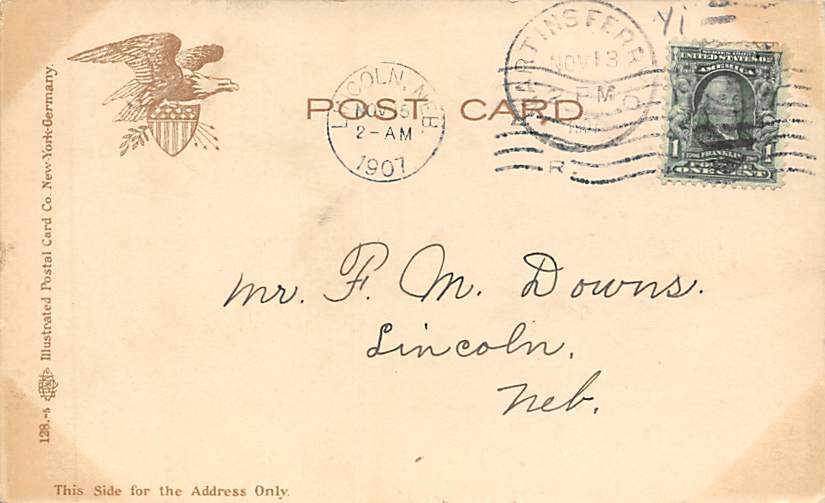 POST CARD
LINCOLN, NEB
NOV 15
2-AM
1907
MARTINS FERRY
NOV 13
PM
1907
R.
SERIES 1902
UNITED STATES OF
AMERICA
FRANKLIN
1 1
ONE CENT
Mr. F. M. Downs.
Lincoln,
Neb.
128.-5 Illustrated Postal Card Co. New-York-Germany.
This Side for the Address Only.